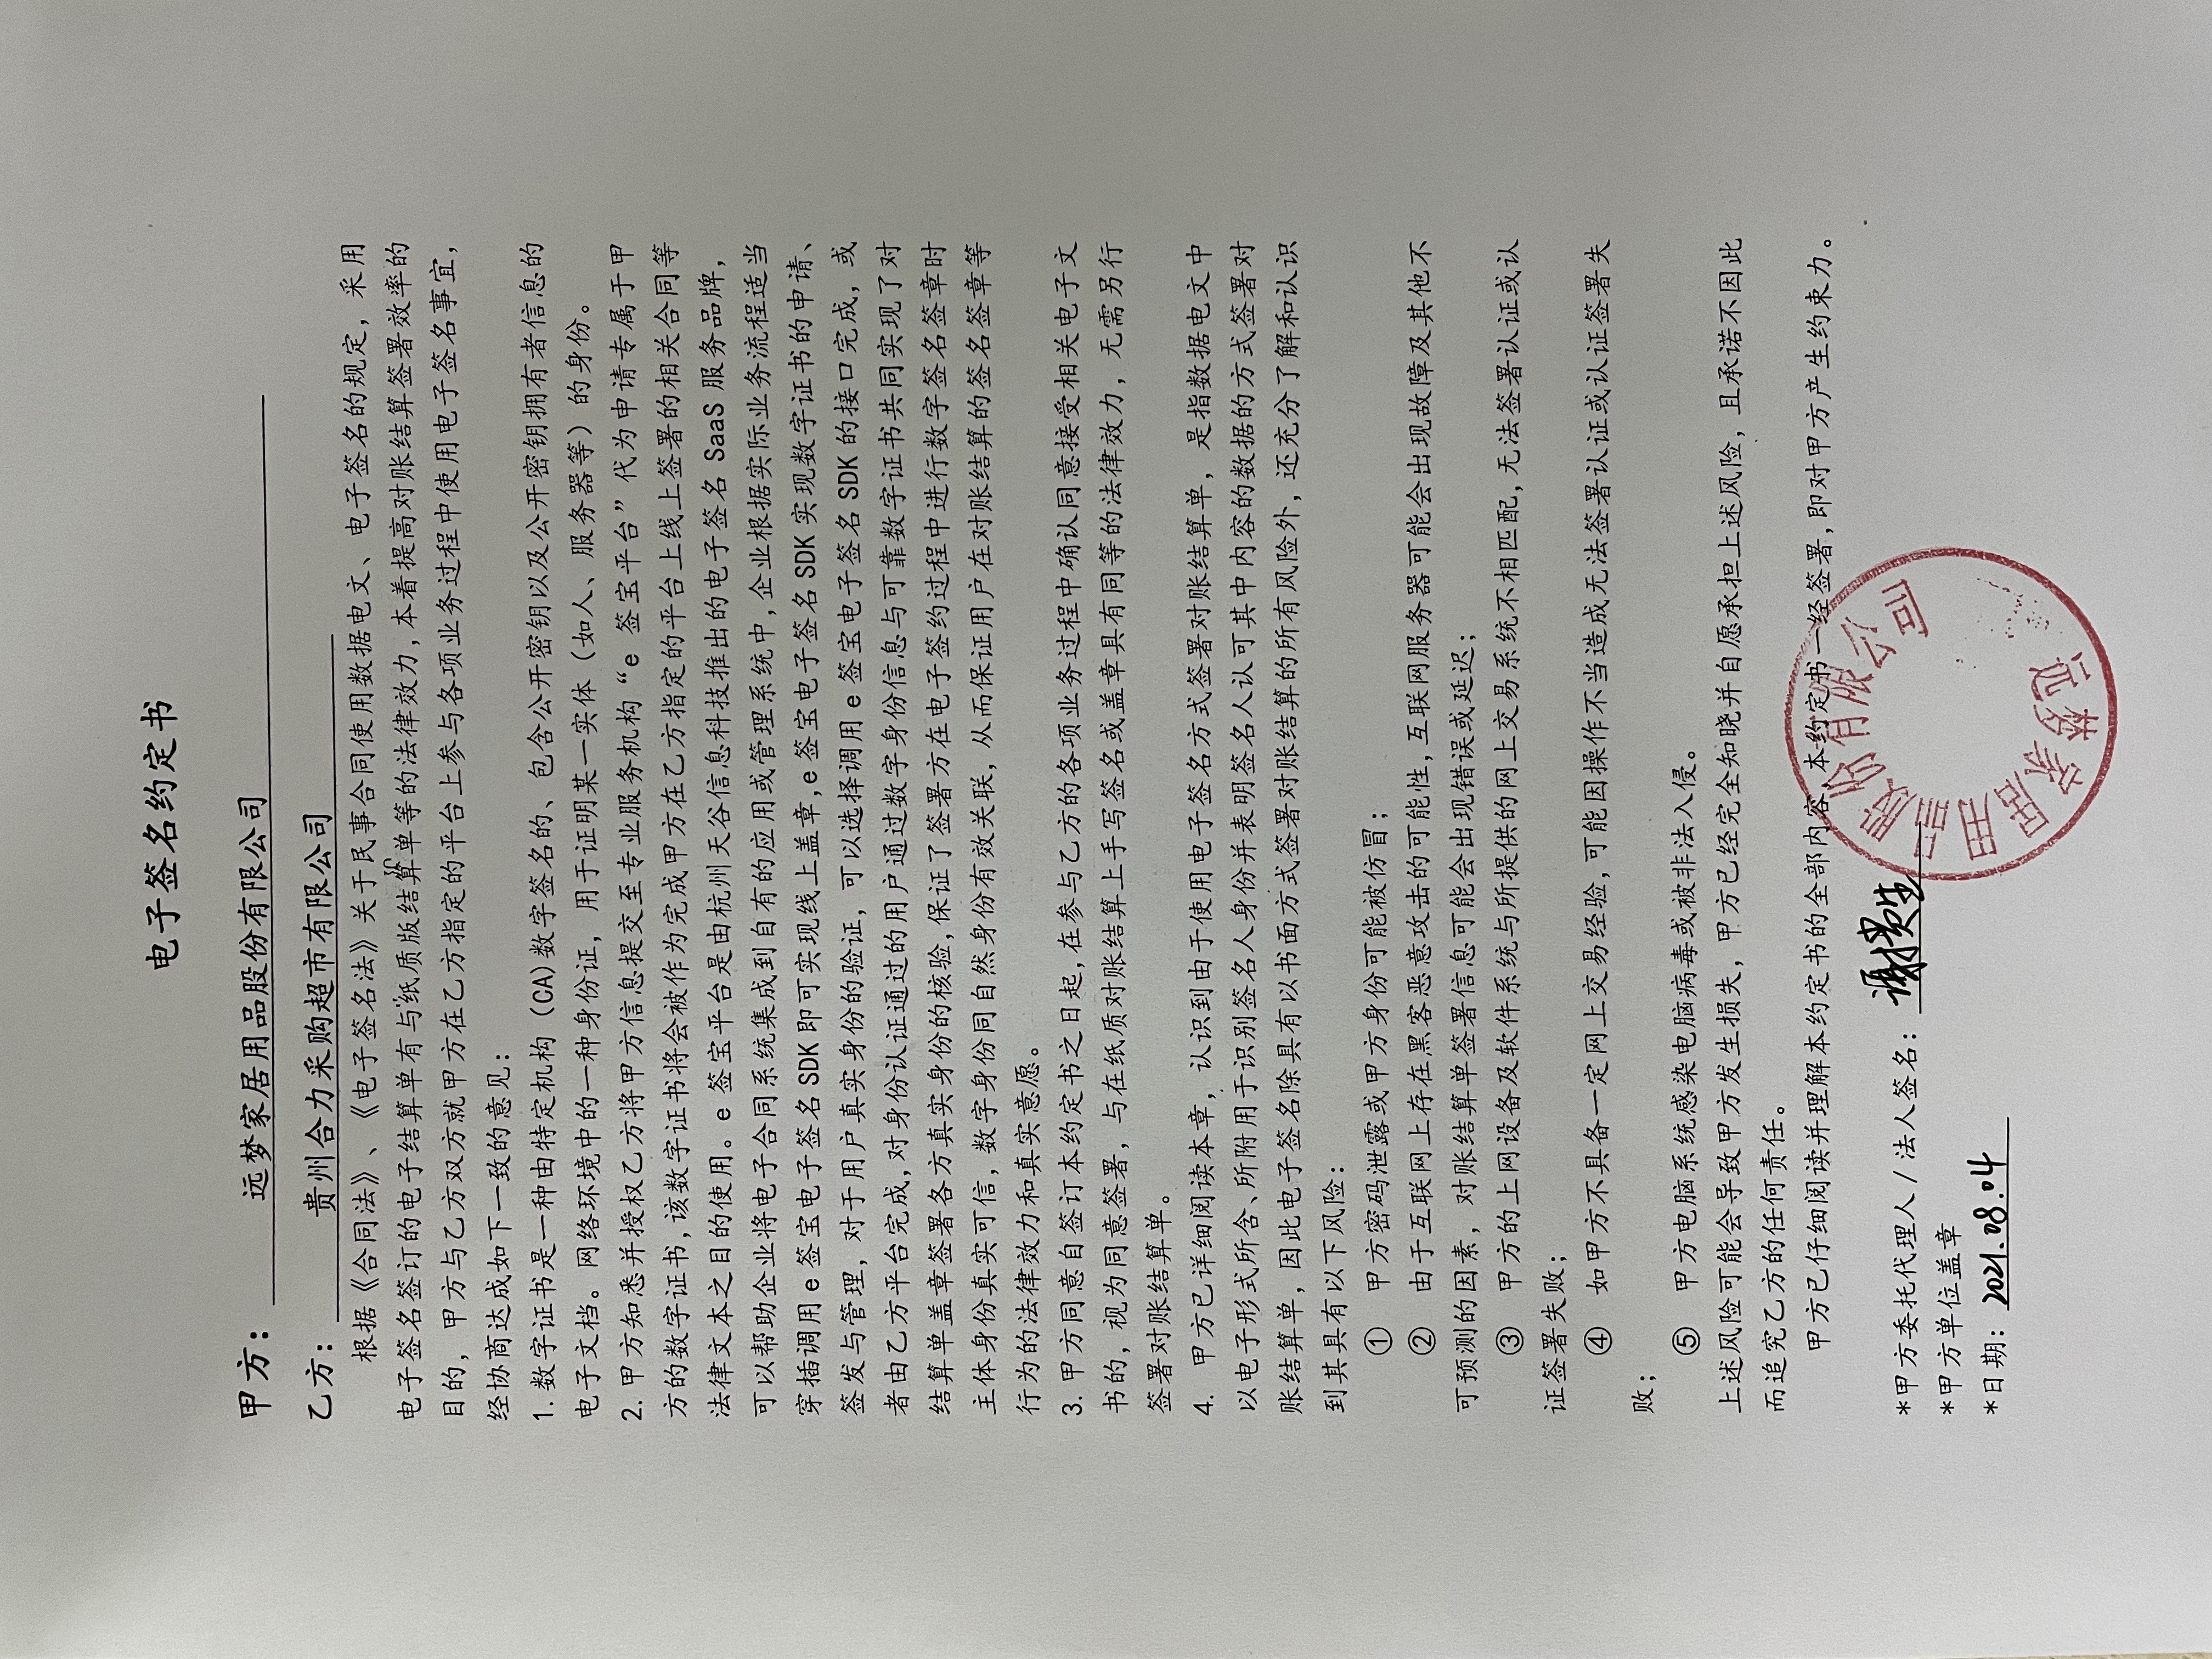 电子签名约定书
甲方： 远梦家居用品股份有限公司
乙方： 贵州合力采购超市有限公司
根据《合同法》、《电子签名法》关于民事合同使用数据电文、电子签名的规定，采用
电子签名签订的电子结算单有与纸质版结算单等的法律效力，本着提高对账结算签署效率的
目的，甲方与乙方双方就甲方在乙方指定的平台上参与各项业务过程中使用电子签名事宜，
经协商达成如下一致的意见：
1. 数字证书是一种由特定机构（CA）数字签名的、包含公开密钥以及公开密钥拥有者信息的
电子文档。网络环境中的一种身份证，用于证明某一实体（如人、服务器等）的身份。
2. 甲方知悉并授权乙方将甲方信息提交至专业服务机构“e 签宝平台”代为申请专属于甲
方的数字证书，该数字证书将会被作为完成甲方在乙方指定的平台上线上签署的相关合同等
法律文本之目的使用。e 签宝平台是由杭州天谷信息科技推出的电子签名 SaaS 服务品牌，
可以帮助企业将电子合同系统集成到自有的应用或管理系统中，企业根据实际业务流程适当
穿插调用 e 签宝电子签名 SDK 即可实现线上盖章，e 签宝电子签名 SDK 实现数字证书的申请、
签发与管理，对于用户真实身份的验证，可以选择调用 e 签宝电子签名 SDK 的接口完成，或
者由乙方平台完成，对身份认证通过的用户通过数字身份信息与可靠数字证书共同实现了对
结算单盖章签署各方真实身份的核验，保证了签署方在电子签约过程中进行数字签名签章时
主体身份真实可信，数字身份同自然身份有效关联，从而保证用户在对账结算的签名签章等
行为的法律效力和真实意愿。
3. 甲方同意自签订本约定书之日起，在参与乙方的各项业务过程中确认同意接受相关电子文
书的，视为同意签署，与在纸质对账结算上手写签名或盖章具有同等的法律效力，无需另行
签署对账结算单。
4. 甲方已详细阅读本章，认识到由于使用电子签名方式签署对账结算单，是指数据电文中
以电子形式所含、所附用于识别签名人身份并表明签名人认可其中内容的数据的方式签署对
账结算单，因此电子签名除具有以书面方式签署对账结算的所有风险外，还充分了解和认识
到其具有以下风险：
① 甲方密码泄露或甲方身份可能被仿冒；
② 由于互联网上存在黑客恶意攻击的可能性，互联网服务器可能会出现故障及其他不
可预测的因素，对账结算单签署信息可能会出现错误或延迟；
③ 甲方的上网设备及软件系统与所提供的网上交易系统不相匹配，无法签署认证或认
证签署失败；
④ 如甲方不具备一定网上交易经验，可能因操作不当造成无法签署认证或认证签署失
败；
⑤ 甲方电脑系统感染电脑病毒或被非法入侵。
上述风险可能会导致甲方发生损失，甲方已经完全知晓并自愿承担上述风险，且承诺不因此
而追究乙方的任何责任。
甲方已仔细阅读并理解本约定书的全部内容，本约定书一经签署，即对甲方产生约束力。
*甲方委托代理人/法人签名：
*甲方单位盖章
*日期：2021.08.04
远梦家居用品股份有限公司